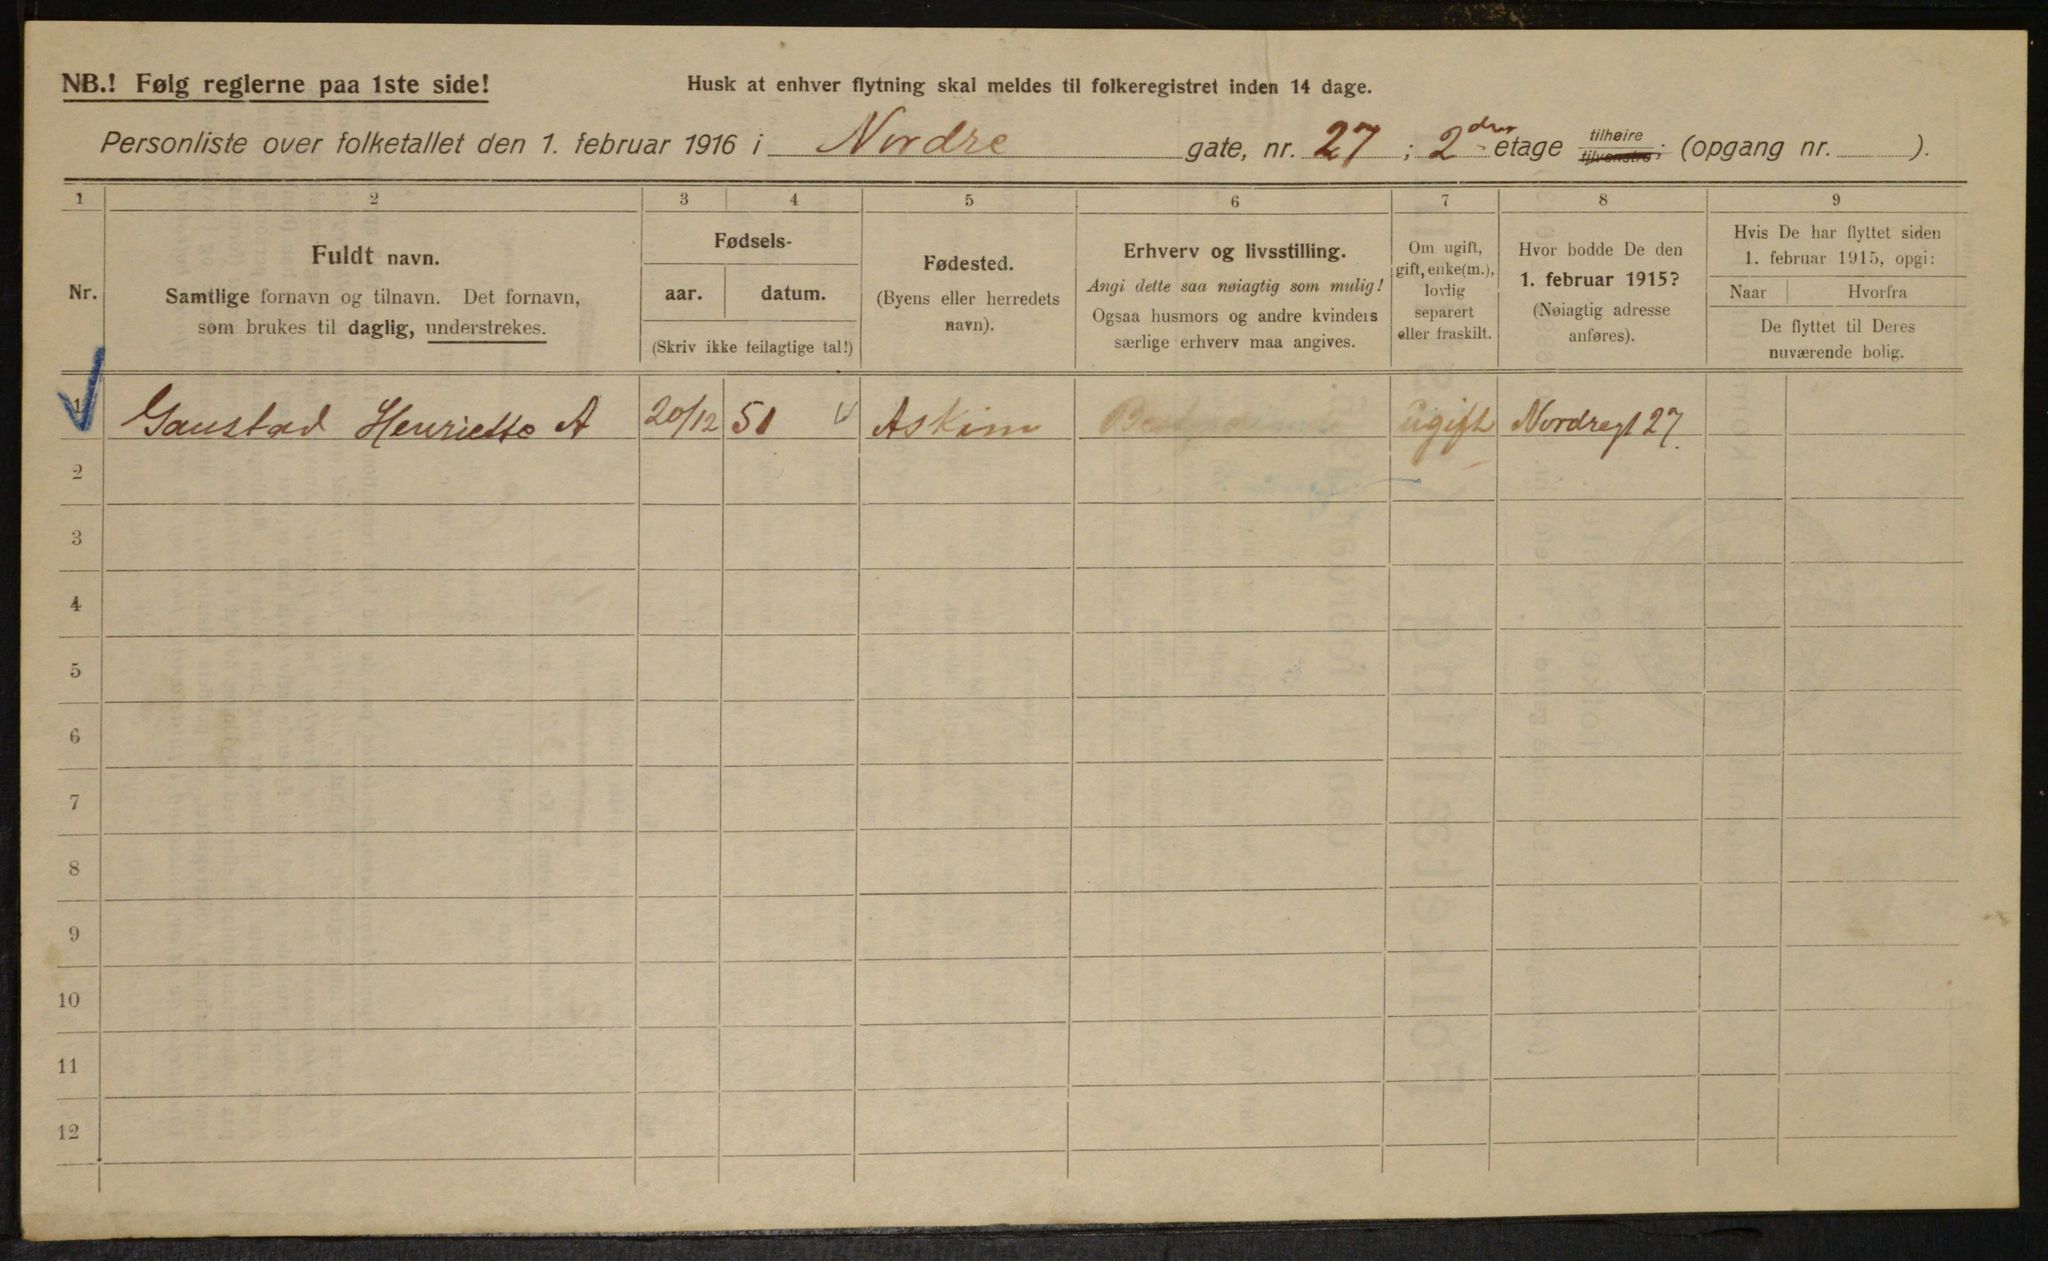 NB.! Følg reglerne paa 1ste side!
Husk at enhver flytning skal meldes til folkeregistret inden 14 dage.
Personliste over folketallet den 1. februar 1916 i Nordre gate, nr. 27 ; 2 etage tilhøire tilvenstre; (opgang nr. ).
1 2 3 4 5 6 7 8 9
Nr.
Fuldt navn.
Samtlige fornavn og tilnavn. Det fornavn,
som brukes til daglig, understrekes.
Fødsels-
aar. datum.
(Skriv ikke feilagtige tal!)
Fødested.
(Byens eller herredets
navn).
Erhverv og livsstilling.
Angi dette saa nøiagtig som mulig!
Ogsaa husmors og andre kvinders
særlige erhverv maa angives.
Om ugift,
gift, enke(m.),
lovlig
separert
eller fraskilt.
Hvor bodde De den
1. februar 1915?
(Nøiagtig adresse
anføres).
Hvis De har flyttet siden
1. februar 1915, opgi:
Naar Hvorfra
De flyttet til Deres
nuværende bolig.
1 Gaustad Henriette A 20/12 51 Askim Ugift Nordregt 27.
2
3
4
5
6
7
8
9
10
11
12